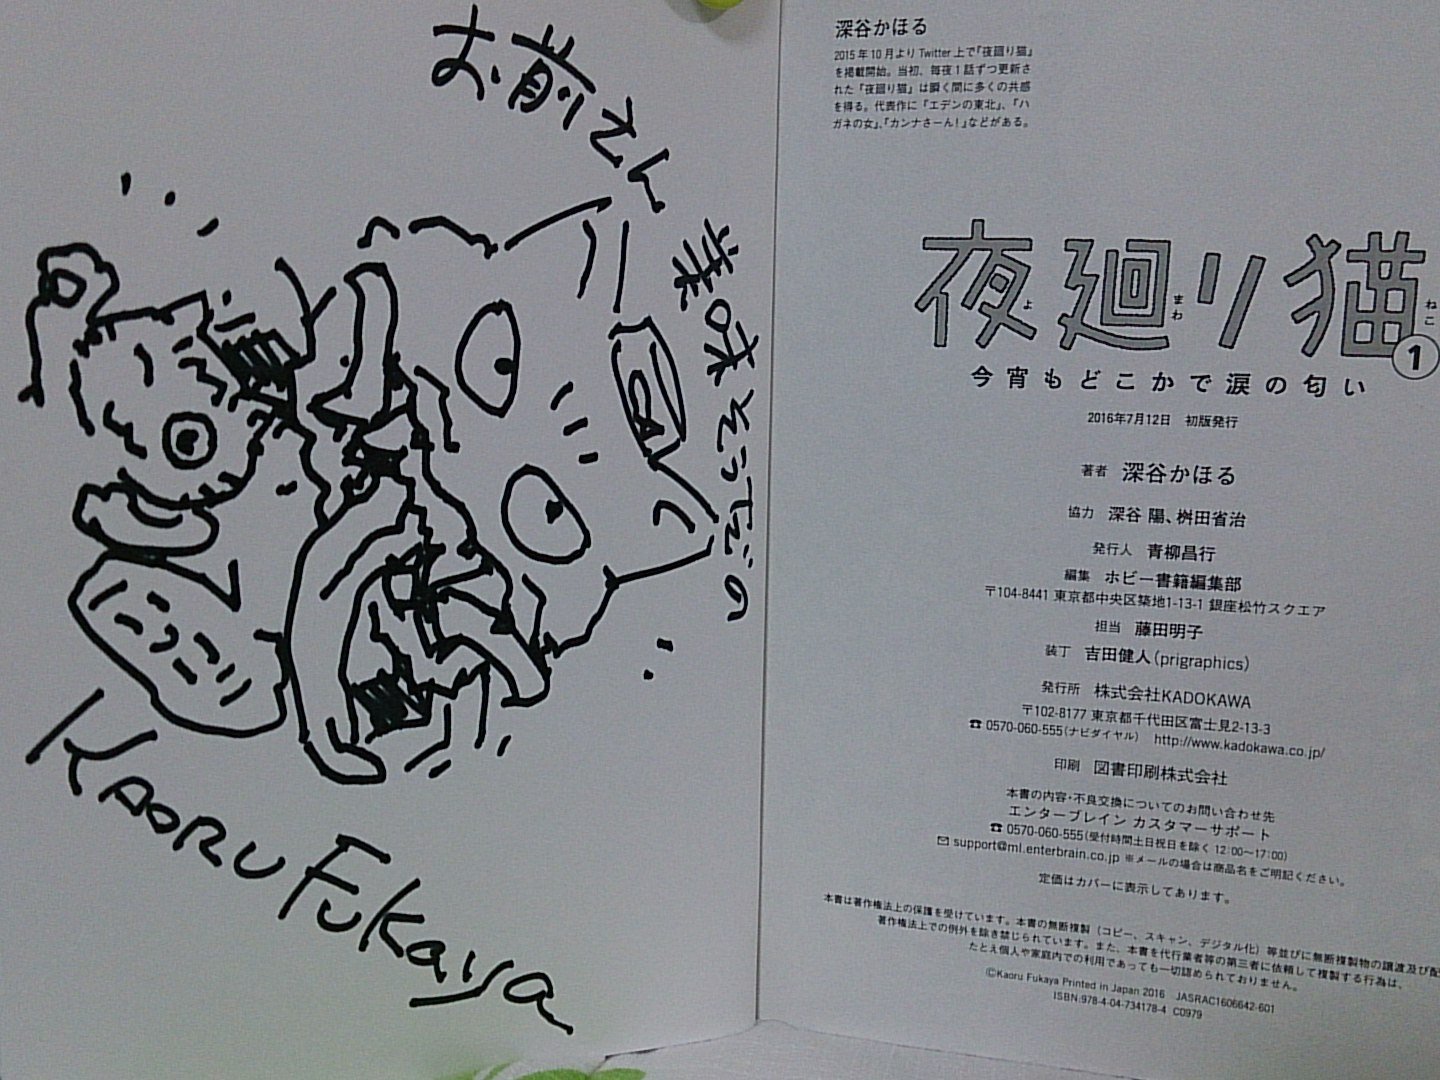 お前さん
美味そうだの
にっこり
KAORU FUKAYA
深谷かほる
2015年10月よりTwitter上で『夜廻り猫』
を掲載開始。当初、毎夜1話ずつ更新さ
れた『夜廻り猫』は瞬く間に多くの共感
を得る。代表作に『エデンの東北』、『ハ
ガネの女』、『カンナさーん!』などがある。
夜廻り猫
よ まわ ねこ
1
今宵もどこかで涙の匂い
2016年7月12日 初版発行
著者 深谷かほる
協力 深谷 陽、桝田省治
発行人 青柳昌行
編集 ホビー書籍編集部
〒104-8441 東京都中央区築地1-13-1 銀座松竹スクエア
担当 藤田明子
装丁 吉田健人(prigraphics)
発行所 株式会社KADOKAWA
〒102-8177 東京都千代田区富士見2-13-3
☎ 0570-060-555(ナビダイヤル) http://www.kadokawa.co.jp/
印刷 図書印刷株式会社
本書の内容・不良交換についてのお問い合わせ先
エンターブレイン カスタマーサポート
☎ 0570-060-555(受付時間土日祝日を除く 12:00〜17:00)
✉ support@ml.enterbrain.co.jp ※メールの場合は商品名をご明記ください。
定価はカバーに表示してあります。
本書は著作権法上の保護を受けています。本書の無断複製(コピー、スキャン、デジタル化)等並びに無断複製物の譲渡及び配
著作権法上での例外を除き禁じられています。また、本書を代行業者等の第三者に依頼して複製する行為は、
たとえ個人や家庭内での利用であっても一切認められておりません。
©Kaoru Fukaya Printed in Japan 2016 JASRAC1606642-601
ISBN:978-4-04-734178-4 C0979